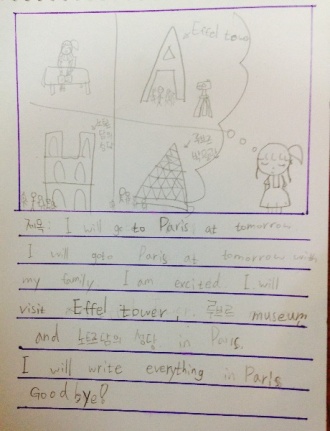 Effel tower
노트르담의 성당
루브르 박물관
제목: I will go to Paris at tomorrow
I will goto Paris at tomorrow with
my family I am excited. I will
visit Effel tower, 루브르 museum
and 노트르담의 성당 in Paris.
I will write everything in Paris
Good bye!